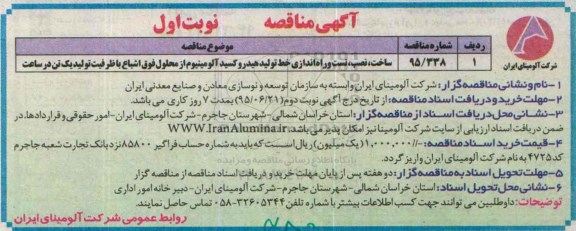 آگهی مناقصه نوبت اول
شرکت آلومینای ایران
ردیف شماره مناقصه موضوع مناقصه
۱ ۹۵/۳۳۸ ساخت، نصب، تست و راه اندازی خط تولید هیدروکسید آلومینیوم از محلول فوق اشباع با ظرفیت تولید یک تن در ساعت
۱- نام و نشانی مناقصه گزار: شرکت آلومینای ایران وابسته به سازمان توسعه و نوسازی معادن و صنایع معدنی ایران
۲- مهلت خرید و دریافت اسناد مناقصه: از تاریخ درج آگهی نوبت دوم (۹۵/۰۶/۲۱) بمدت ۷ روز کاری می باشد.
۳- نشانی محل دریافت اسناد از مناقصه گزار: استان خراسان شمالی-شهرستان جاجرم-شرکت آلومینای ایران-امور حقوقی و قراردادها. در
ضمن دریافت اسناد ارزیابی از سایت شرکت آلومینا نیز امکان پذیر می باشد. WWW.IranAlumina.ir
۴- قیمت خرید اسناد مناقصه: ۱,۰۰۰,۰۰۰/- (یک میلیون) ریال است که باید به شماره حساب فراگیر ۸۵۸۰۰ نزد بانک تجارت شعبه جاجرم
کد ۴۷۲۵ به نام شرکت آلومینای ایران واریز گردد.
۵- مهلت تحویل اسناد به مناقصه گزار: دو هفته پس از پایان مهلت خرید و دریافت اسناد مناقصه از مناقصه گزار
۶- نشانی محل تحویل اسناد: استان خراسان شمالی-شهرستان جاجرم-شرکت آلومینای ایران-دبیر خانه امور اداری
توضیحات: داوطلبین می توانند جهت کسب اطلاعات بیشتر با شماره تلفن ۳۲۶۰۵۳۴۴-۰۵۸ تماس حاصل نمایند.
روابط عمومی شرکت آلومینای ایران